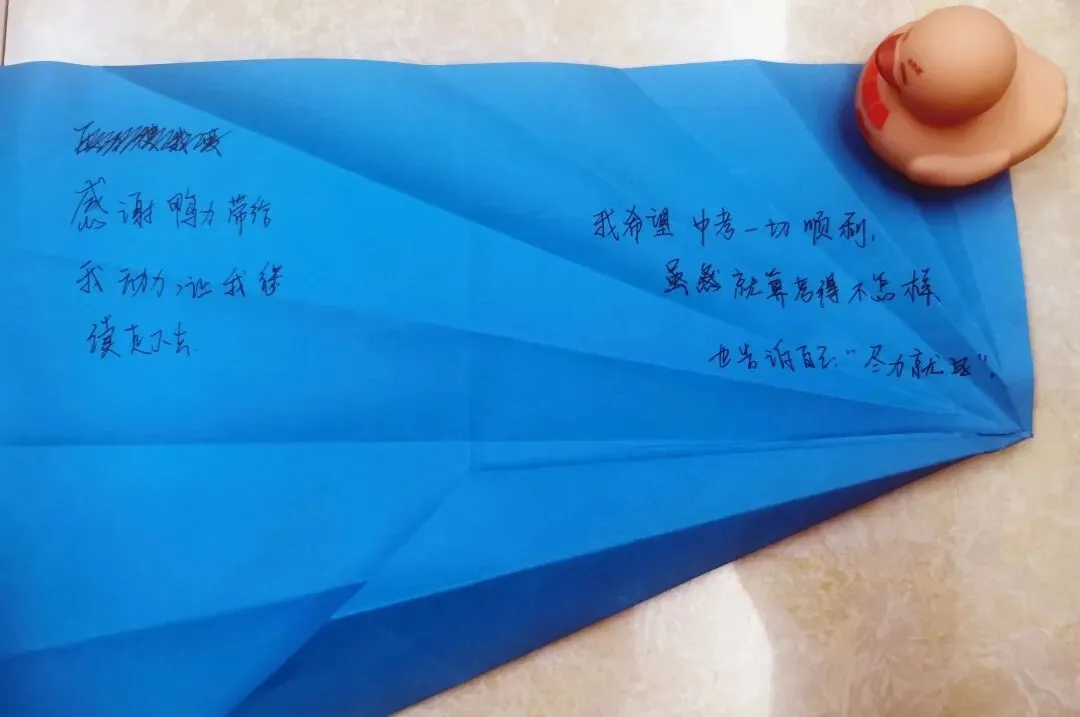 感谢鸭力带给
我动力,让我继
续走下去.
我希望中考一切顺利,
虽然就算考得不怎样
也告诉自己:“尽力就是”。